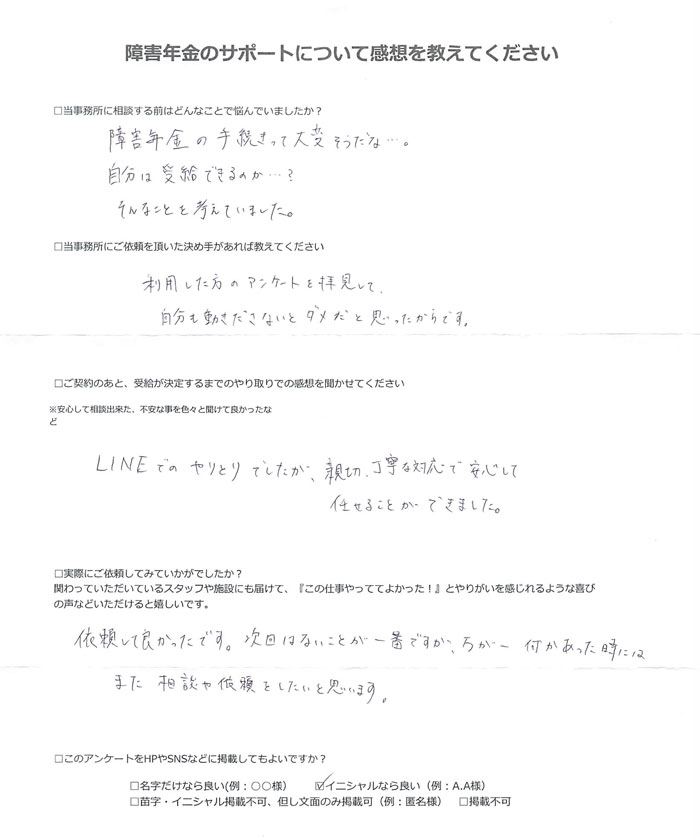 障害年金のサポートについて感想を教えてください
□当事務所に相談する前はどんなことで悩んでいましたか？
障害年金の手続きって大変そうだな…。
自分は受給できるのか…？
そんなことを考えていました。
□当事務所にご依頼を頂いた決め手があれば教えてください
利用した方のアンケートを拝見して、
自分も動きださないとダメだと思ったからです。
□ご契約のあと、受給が決定するまでのやり取りでの感想を聞かせてください
※安心して相談出来た、不安な事を色々と聞けて良かったな
ど
LINEでのやりとりでしたが、親切、丁寧な対応で安心して
任せることができました。
□実際にご依頼してみていかがでしたか？
関わっていただいているスタッフや施設にも届けて、『この仕事やっててよかった！』とやりがいを感じれるような喜び
の声などいただけると嬉しいです。
依頼して良かったです。次回はないことが一番ですが、万が一何かあった時には
また相談や依頼をしたいと思います。
□このアンケートをHPやSNSなどに掲載してもよいですか？
□名字だけなら良い(例：〇〇様） ☑イニシャルなら良い（例：A.A様）
□苗字・イニシャル掲載不可、但し文面のみ掲載可（例：匿名様） □掲載不可